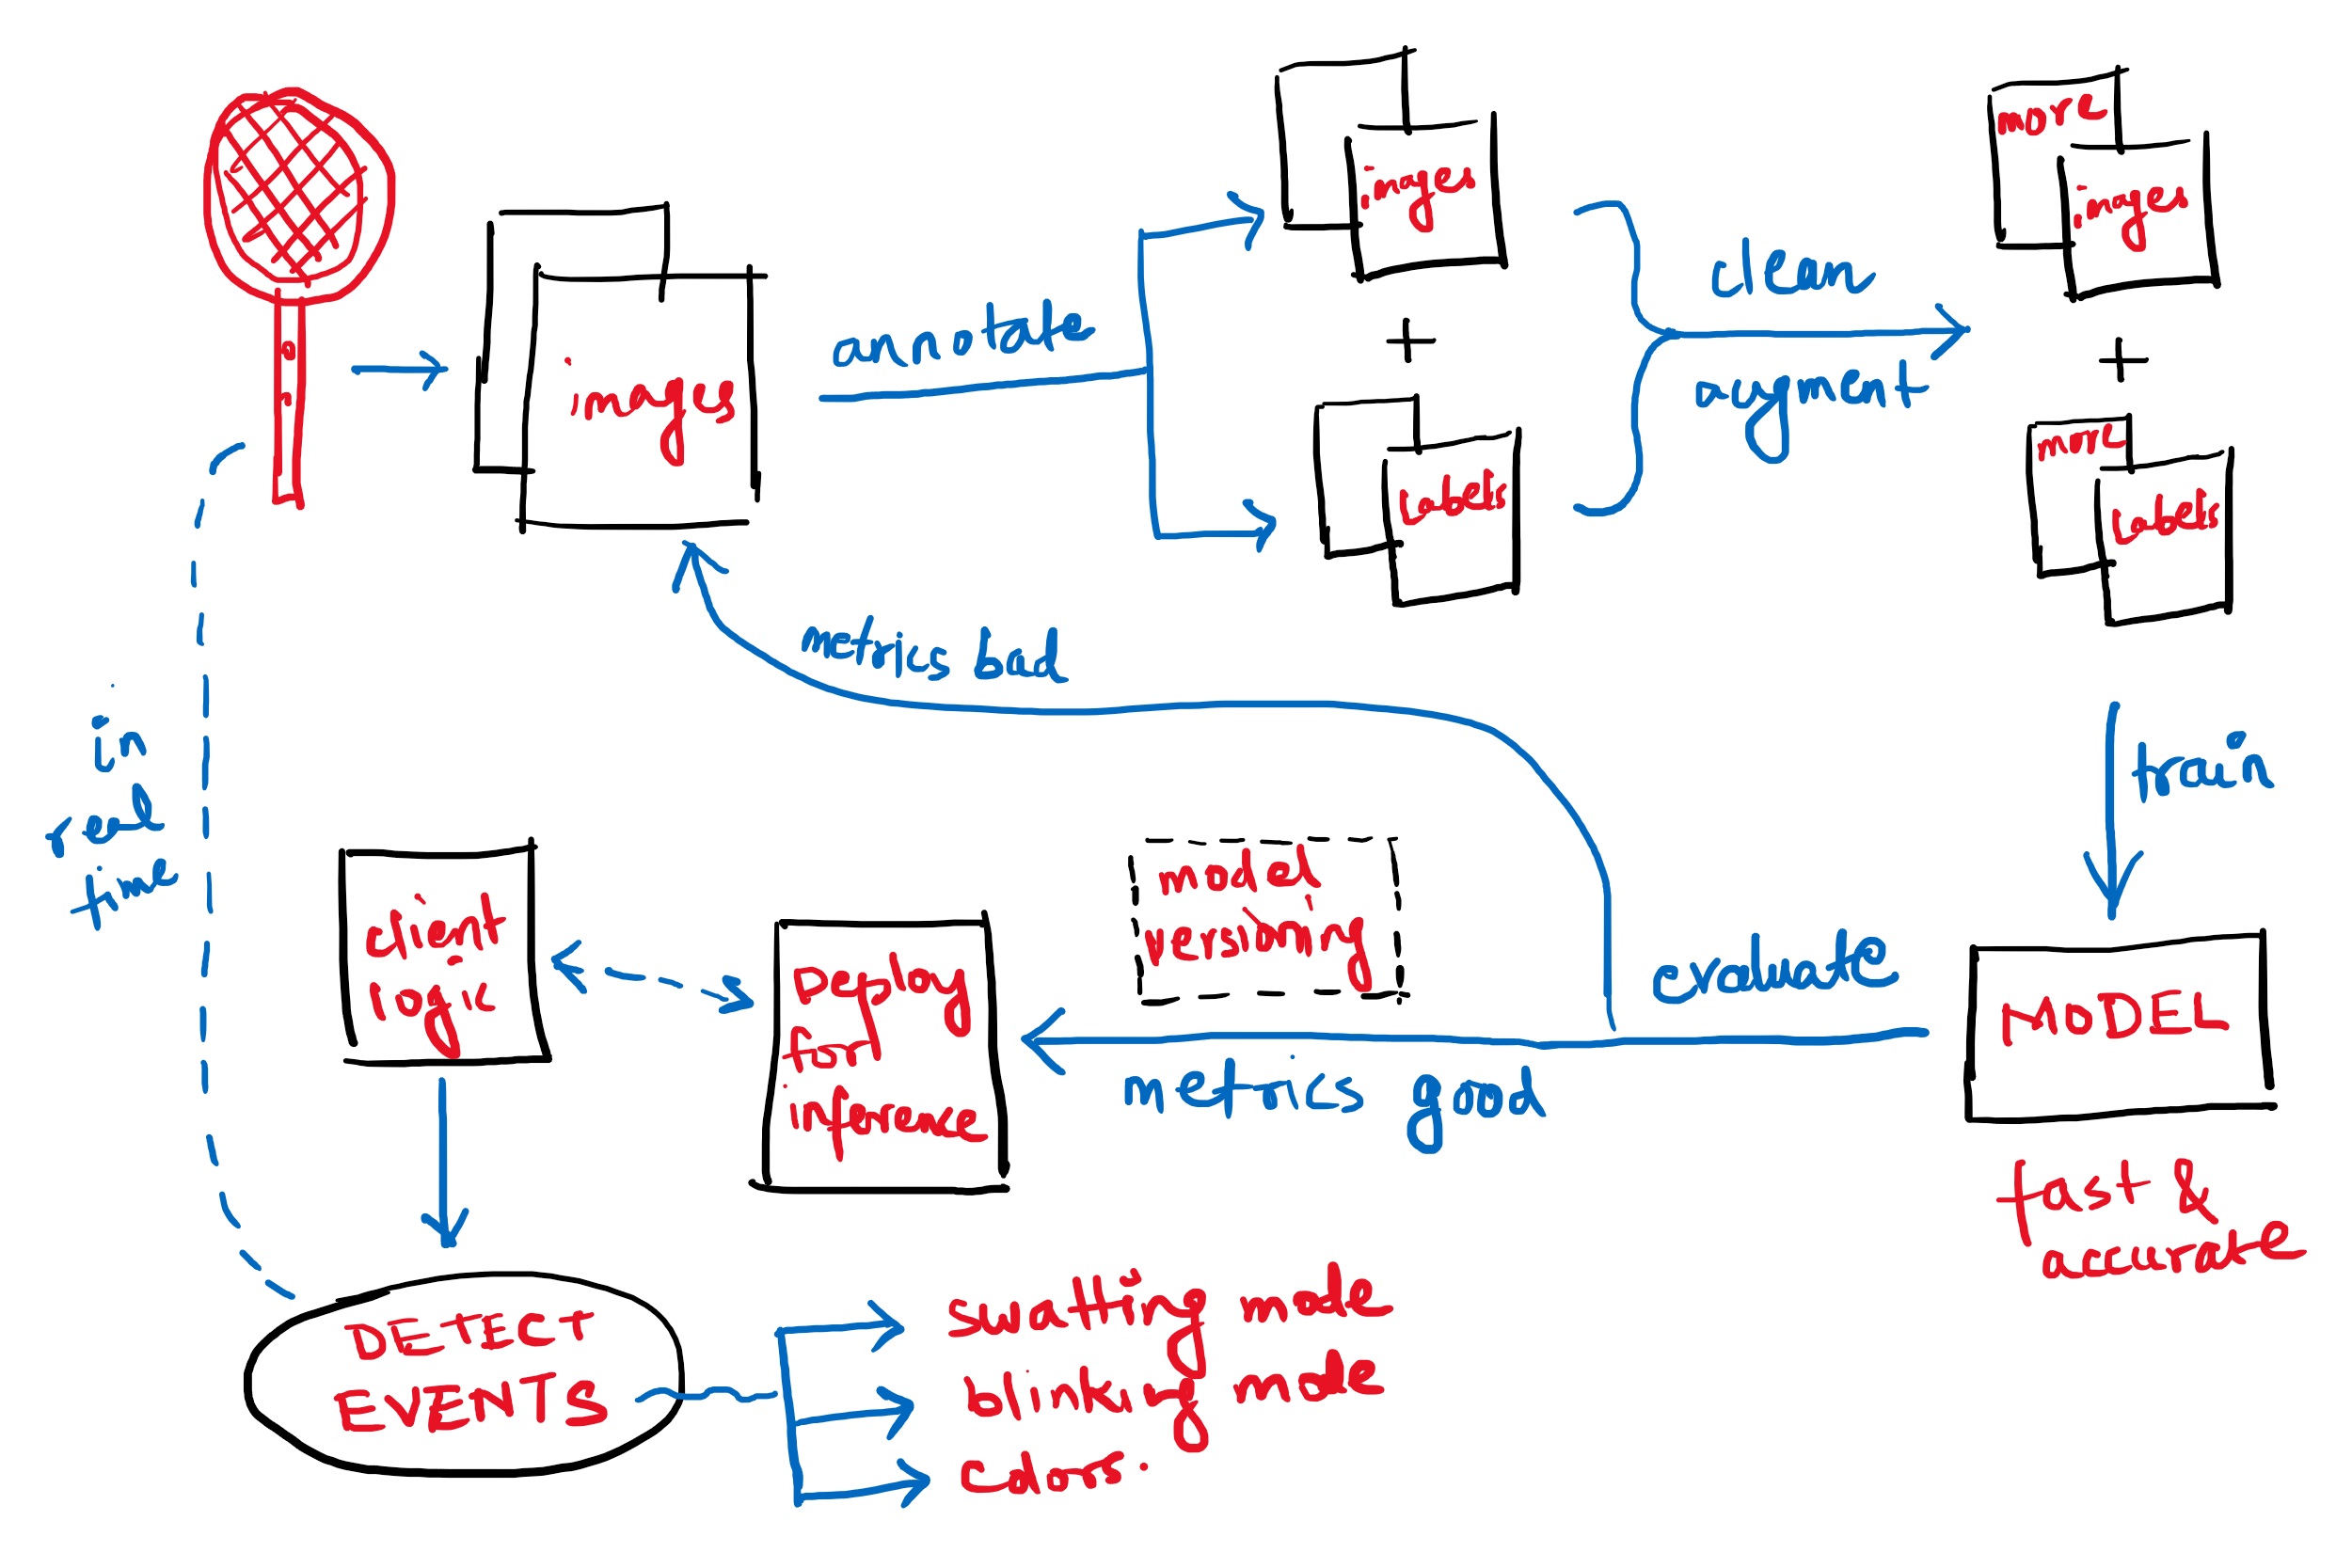 images
annotate
images
+
labels
clean
augment
more
images
+
more
labels
train
MODEL
fast &
accurate
evaluate
metrics bad
metrics good
model
versioning
Deploy
for
inference
client
logic
in
real
time
DETECT
EVENTS
swatting mode
blinking mode
colors.